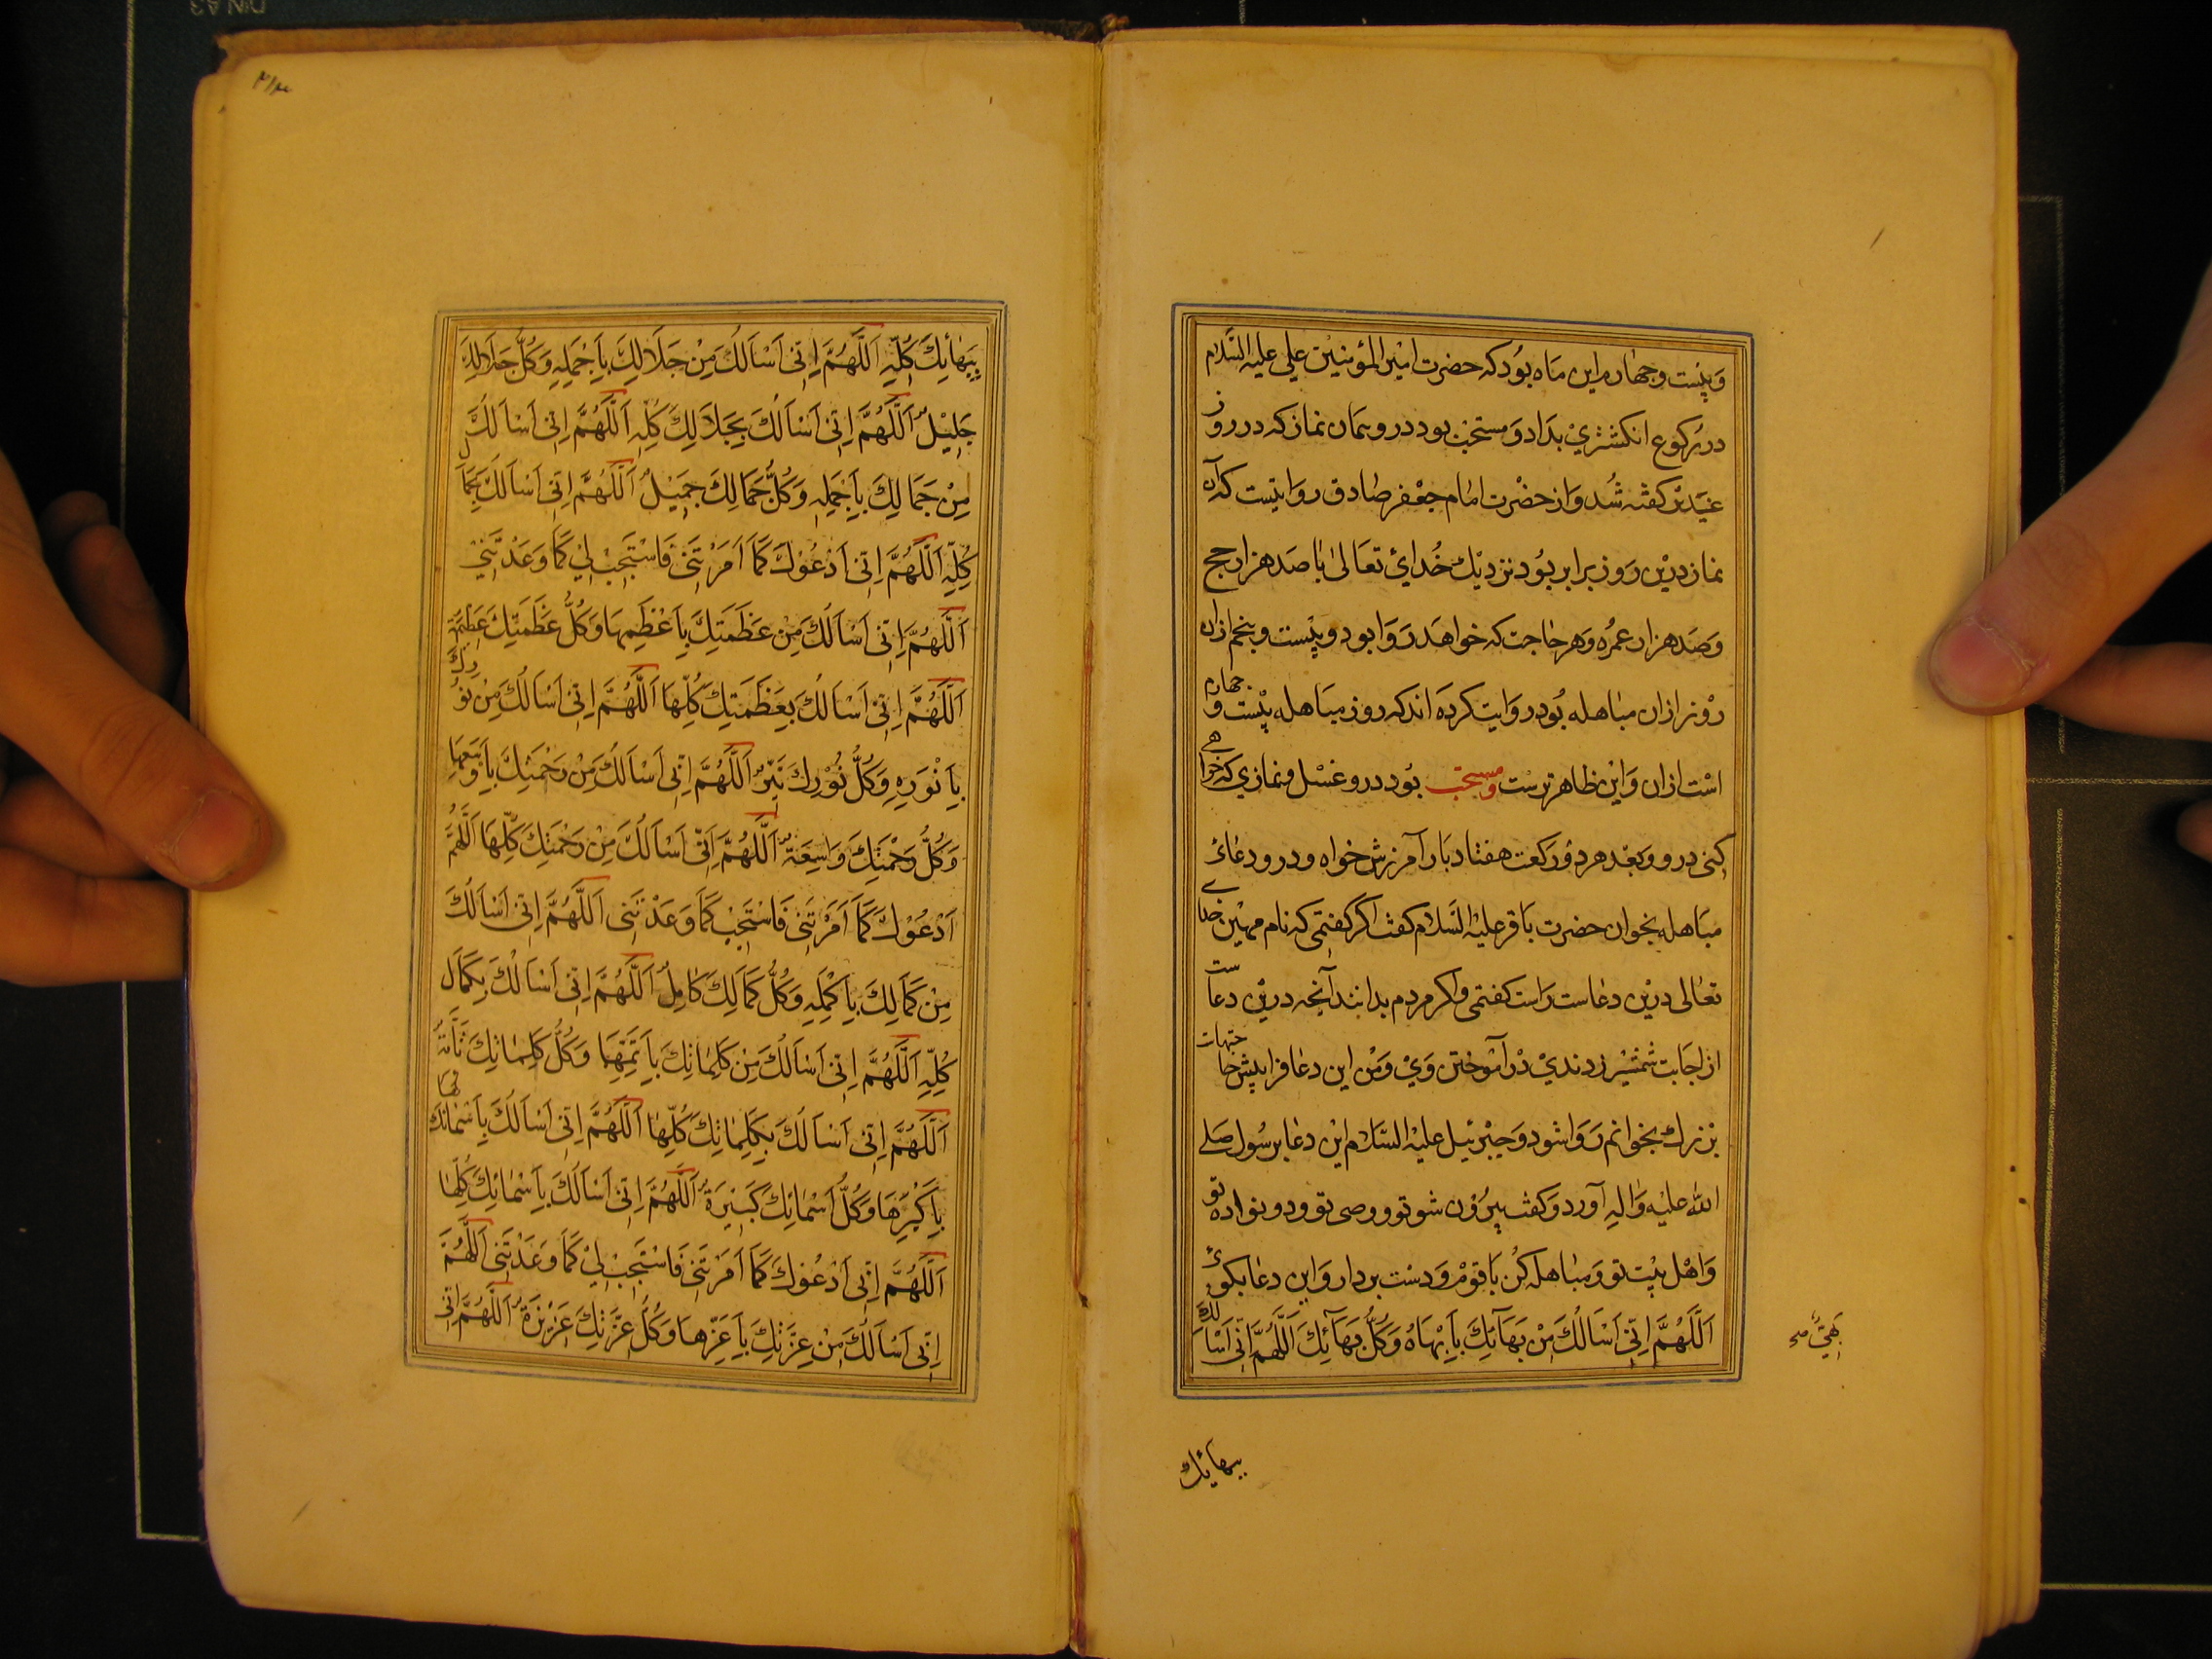 وَبیست وجهارم این مَاه بوُد که حضرت امیر المؤمنین علی علیه السَّلام
در رکوع انکشتری بدَاد وَ مستحبّ بود در و همان نماز که در روز
غدیر کفته شُد وَ از حضْرت امٰام جعْفر صٰادق روایتست که آن
نماز درین روز برابر بوُد نزدیك خُدایٔ تعَالیٰ بٰا صَد هزار حج
وَ صَد هزار عمُره وَ هر حٰاجت که خواهَد رَوَا بود و بیست و پنجم ازان
رْوز ازان مبٰاهله بُود روَایت کردَه اند که روز مبَاهله بیْست و جهارم
اسْت ازان وَ این ظاهر ترست و مستحبّ بُود در و غسْل و نمازی که خواهے
کنی در و و بعْد هر دوُ رکعت هفتاد بَار آمرزش خواه و در و دعٰاءٔ
مبَاهله بخوان حضرت بَاقر علیه السَّلام کفت اکر کفتمی که نام مهین خداے
تعٰالی درین دعٰاست رَاست کفتمی وَاکر مردم بدانند آنجه درین دعاست
از اجَابت شمشیْر زدندیْ دْر آموْختن وَیْ وَ مْن این دعا فرا پیش حاجتهات
بزرك بخوانم رَوَا شود وَ جبْرئیل علیْه السَّلام این دعا بر سُول صَلے
الله علیْه وَاٰلِه آورد وَ کفت بیرُوْن شو تو و وصی تو و دو نواده تو
وَ اهْل بیْت تو وَ مبٰاهله کُن بٰا قوْم وَ دسْت بردار وَ این دعٰا بکوئ
اَللّٰهُمَّ اِنّی اَسْاَلُكَ مِنْ بَهَآئِكَ بِاَبْهَاهُ وَكُلُّ بَهَآئِكَ اَللّٰهُمَّ اِنّی اَسْاَلُكَ
بَهِیٌّ صح
ببهائك
٢١٣
بِبَهٰائِكَ كُلِّهِ اَللّٰهُمَّ اِنّی اَسْاَلُكَ مِنْ جَلَالِكَ بِاَجْمَلِهِ وَكُلُّ جَلَالِكَ
جَلِیْلٌ اَللّٰهُمَّ اِنّی اَسْاَلُكَ بِجَلَالِكَ كُلِّهِ اَللّٰهُمَّ اِنّی اَسْاَلُكَ
مِنْ جَمَالِكَ بِاَجْمَلِهِ وَكُلُّ جَمَالِكَ جَمِیْلٌ اَللّٰهُمَّ اِنّی اَسْاَلُكَ بِجَمَا
كُلِّهِ اَللّٰهُمَّ اِنّی اَدْعُوْكَ كَمَا اَمَرْتَنی فَاسْتَجِبْ لِیْ كَمَا وَعَدْتَنِیْ
اَللّٰهُمَّ اِنّی اَسْاَلُكَ مِنْ عَظَمَتِكَ بِاَعْظَمِهَا وَكُلُّ عَظَمَتِكَ عَظِیْمَةٌ
اَللّٰهُمَّ اِنّی اَسْاَلُكَ بِعَظَمَتِكَ كُلِّهَا اَللّٰهُمَّ اِنّی اَسْاَلُكَ مِنْ نُوْرِكَ
بِاَنْوَرِهِ وَكُلُّ نُوْرِكَ نَیِّرٌ اَللّٰهُمَّ اِنّی اَسْاَلُكَ مِنْ رَحْمَتِكَ بِاَوْسَعِهَا
وَكُلُّ رَحْمَتِكَ وَاسِعَةٌ اَللّٰهُمَّ اِنّی اَسْاَلُكَ مِنْ رَحْمَتِكَ كُلِّهَا اَللّٰهُمَّ
اَدْعُوْكَ كَمَا اَمَرْتَنی فَاسْتَجِبْ كَمَا وَعَدْتَنی اَللّٰهُمَّ اِنّی اَسْاَلُكَ
مِنْ كَمَالِكَ بِاَكْمَلِهِ وَكُلُّ كَمَالِكَ كَامِلٌ اَللّٰهُمَّ اِنّی اَسْاَلُكَ بِكَمَالِ
كُلِّهِ اَللّٰهُمَّ اِنّی اَسْاَلُكَ مِنْ كَلِمٰاتِكَ بِاَتَمِّهَا وَكُلُّ كَلِمٰاتِكَ تَامَّةٌ
اَللّٰهُمَّ اِنّی اَسْاَلُكَ بِكَلِمٰاتِكَ كُلِّهَا اَللّٰهُمَّ اِنّی اَسْاَلُكَ بِاَسْمَائِكَ
بِاَكْبَرِهَا وَكُلُّ اَسْمٰائِكَ كَبِیْرَةٌ اَللّٰهُمَّ اِنّی اَسْاَلُكَ بِاَسْمٰائِكَ كُلِّهَا
اَللّٰهُمَّ اِنّی اَدْعُوْكَ كَمَا اَمَرْتَنی فَاسْتَجِبْ لِیْ كَمَا وَعَدْتَنی اَللّٰهُمَّ
اِنّی اَسْاَلُكَ مِنْ عِزَّتِكَ بِاَعَزِّهَا وَكُلُّ عِزَّتِكَ عَزِیْزَةٌ اَللّٰهُمَّ اِنّی